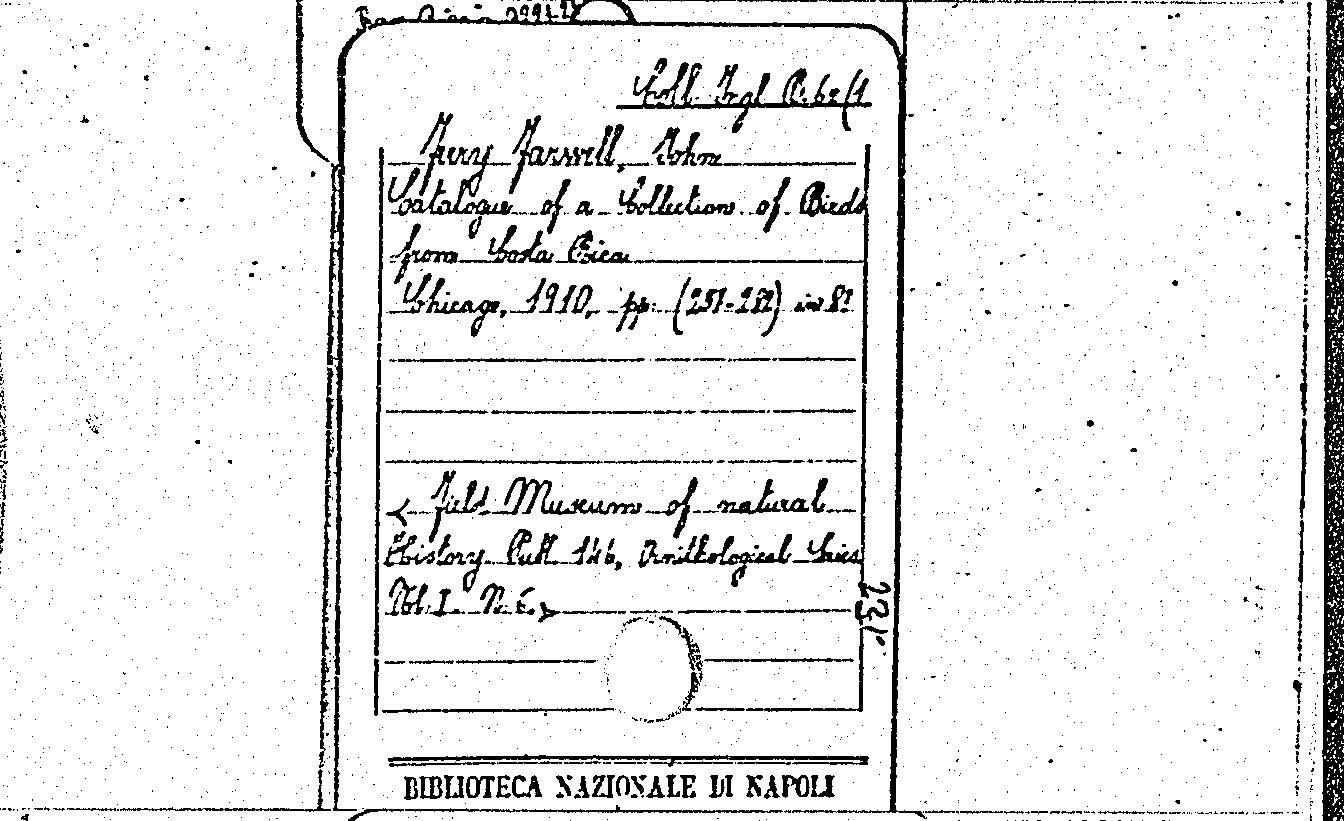 Coll. Ingl. C. 62/1
Ferry Farwell, John
Catalogue of a Collection of Birds
from Costa Rica
Chicago, 1910, pp. (257-282) in 8º
< Field Museum of natural
History. Publ. 146, Ornithological Series
Vol. I. N. 6. >
BIBLIOTECA NAZIONALE DI NAPOLI